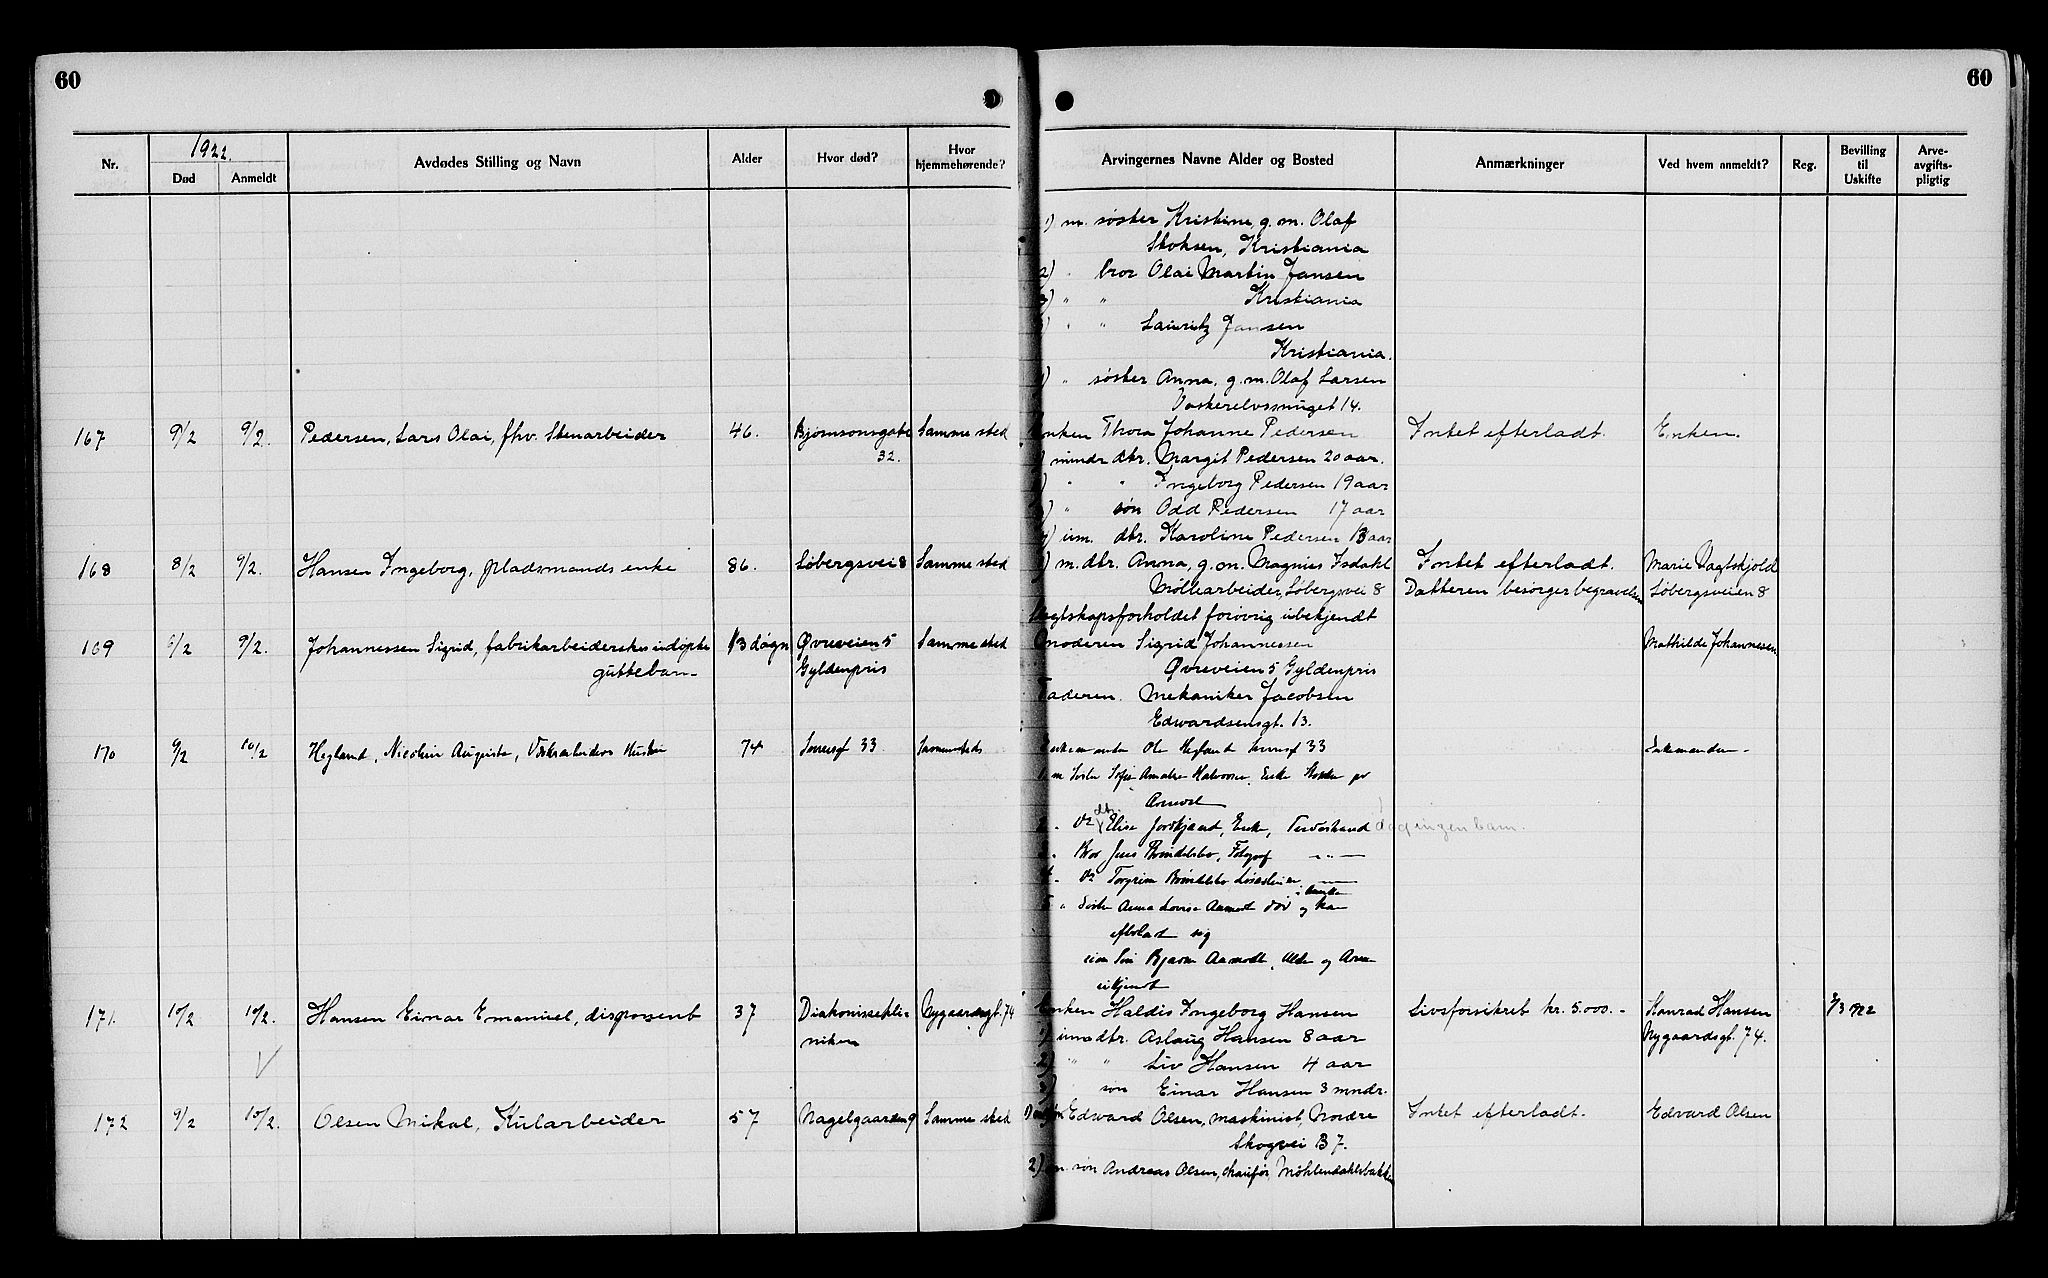 60
60
Nr.
1922.
Død
Anmeldt
Avdødes Stilling og Navn
Alder
Hvor død?
Hvor hjemmehørende?
Arvingernes Navne Alder og Bosted
Anmærkninger
Ved hvem anmeldt?
Reg.
Bevilling til Uskifte
Arve-avgifts-pligtig
1) m. søster Kristine, g.m. Olaf
Stoksen, Kristiania
2) " bror Olai Martin Jansen
3) " " Kristiania
" " Lauritz Jansen
Kristiania.
" søster Anna, g.m. Olaf Larsen
14.
167 9/2 9/2. Pedersen, Lars Olai, fhv. Stenarbeider 46. Bjørnsonsgate Samme sted Enken Thora Johanne Pedersen Intet efterladt. Enken.
32. mindr dtr. Margit Pedersen 20 aar.
" " Ingeborg Pedersen 19 aar
" søn Odd Pedersen 17 aar
um. dtr. Karoline Pedersen 13 aar
168 8/2 9/2. Hansen Ingeborg, pladsmands enke 86. Løbergsvei 8 Samme sted m. dtr. Anna, g.m. Magnus Isdahl Intet efterladt. Marie Vagtskjold
Møllearbeider, Løbergsvei 8 Datteren besørger begravelsen Løbergsveien 8
forøvrig ubekjendt
169 6/2 9/2. Johannessen Sigrid, fabrikarbeiderskes udøpte 13 døgn Øvreveien 5 Samme sted Moderen Sigrid Johannessen Mathilde Johannessen
guttebarn Gyldenpris Øvreveien 5 Gyldenpris
Faderen. Mekaniker Jacobsen
Edwardsensgt. 13.
170 9/2 10/2 Hegland, Nicoline Auguste, Hustru 74 33 Sammesteds Enkemanden Ole Hegland 33 Enkemanden
1 m Søster Sofie Amalie Halvorsen, Enke
Arendal
dtr.
Elise Enke, Tvedestrand dog ingen barn.
Bror Jens Fotograf — " —
Torgrim
5 " Søster Anna Lovise Aamodt død i Amerika og har
efterladt sig
um Søn Bjarne Aamodt, Alder og Adresse
ukjendt
171. 10/2 10/2. Hansen Einar Emanuel, disponent 37 Diakonissekli- Nygaardsgt. 74 Enken Haldis Ingeborg Hansen Livsforsikret kr. 5.000.- Konrad Hansen 7/3 1922
niken 1) um dtr. Aslaug Hansen 8 aar Nygaardsgt. 74.
2) " " Liv Hansen 4 aar
3) søn Einar Hansen 3 mndr.
172 9/2 10/2. Olsen Mikal, Kularbeider 57 Nagelgaarden 9 Samme sted 1) m. søn Edward Olsen, maskinist, Nordre Intet efterladt. Edvard Olsen
Skogvei B 7.
2) m. søn Andreas Olsen, chaufør, Møhlendahlsbakken